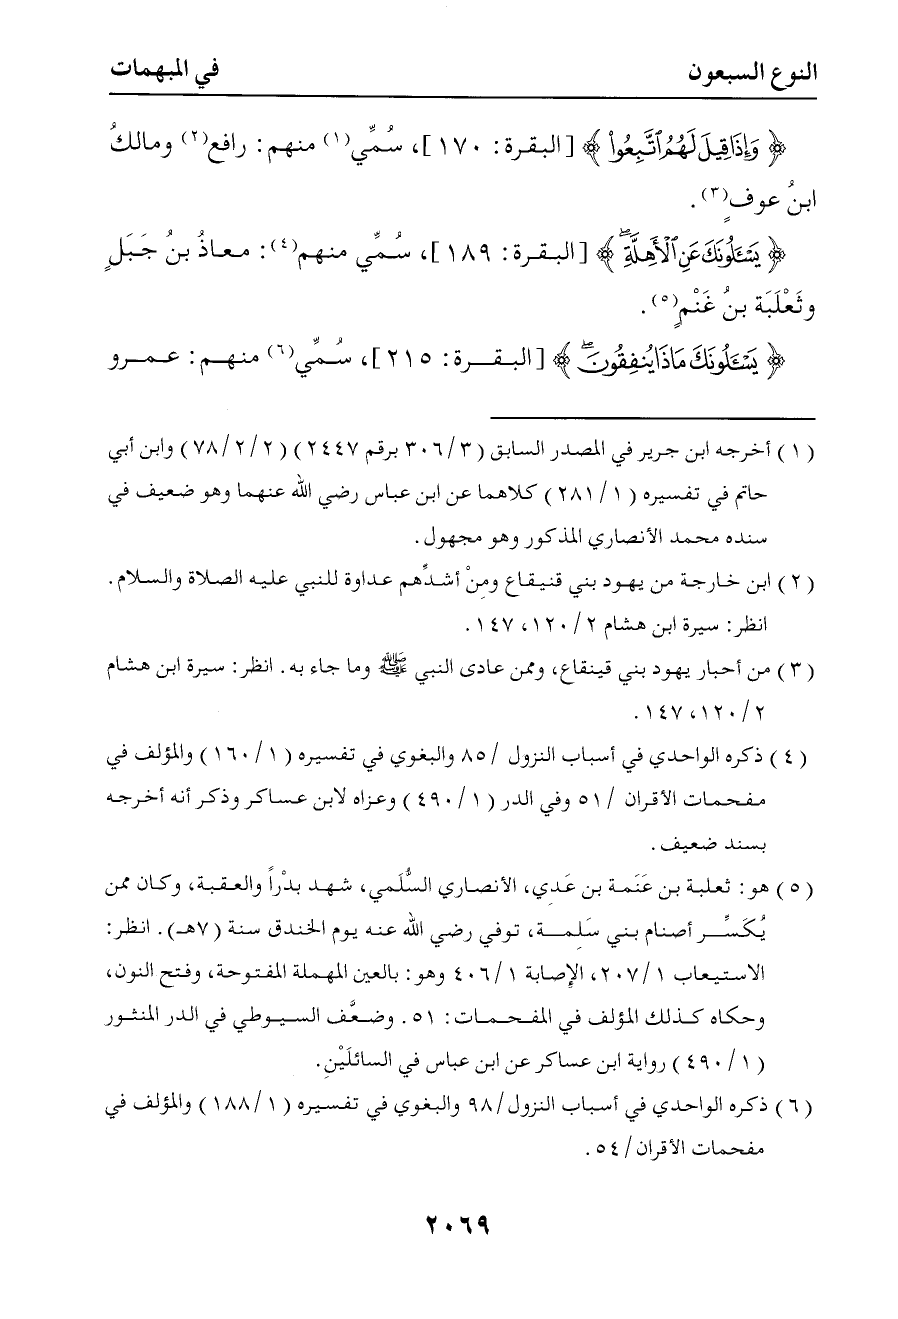 النوع السبعون في المبهمات
﴿ وَإِذَا قِيلَ لَهُمُ ٱتَّبِعُوا۟ ﴾ [البقرة: ١٧٠]، سُمِّي(١) منهم: رافع(٢) ومالكُ
ابنُ عوفٍ(٣).
﴿ يَسْـَٔلُونَكَ عَنِ ٱلْأَهِلَّةِ ۖ ﴾ [البقرة: ١٨٩]، سُمِّي منهم(٤): معاذُ بنُ جَبَلٍ
وثَعْلَبَة بنُ غَنْمٍ(٥).
﴿ يَسْـَٔلُونَكَ مَاذَا يُنفِقُونَ ۖ ﴾ [البقرة: ٢١٥]، سُمِّي(٦) منهم: عمرو
(١) أخرجه ابن جرير في المصدر السابق (٣/ ٣٠٦ برقم ٢٤٤٧) (٢/ ٢/ ٧٨) وابن أبي
حاتم في تفسيره (١/ ٢٨١) كلاهما عن ابن عباس رضي الله عنهما وهو ضعيف في
سنده محمد الأنصاري المذكور وهو مجهول.
(٢) ابن خارجة من يهود بني قنيقاع ومنْ أشدِّهم عداوة للنبي عليه الصلاة والسلام.
انظر: سيرة ابن هشام ٢/ ١٢٠، ١٤٧.
(٣) من أحبار يهود بني قينقاع، وممن عادى النبي ﷺ وما جاء به. انظر: سيرة ابن هشام
٢/ ١٢٠، ١٤٧.
(٤) ذكره الواحدي في أسباب النزول / ٨٥ والبغوي في تفسيره (١/ ١٦٠) والمؤلف في
مفحمات الأقران / ٥١ وفي الدر (١/ ٤٩٠) وعزاه لابن عساكر وذكر أنه أخرجه
بسند ضعيف.
(٥) هو: ثعلبة بن عَنَمة بن عَدي، الأنصاري السُّلمي، شهد بدْراً والعقبة، وكان ممن
يُكَسِّر أصنام بني سَلِمة، توفي رضي الله عنه يوم الخندق سنة (٧هـ). انظر:
الاستيعاب ١/ ٢٠٧، الإصابة ١/ ٤٠٦ وهو: بالعين المهملة المفتوحة، وفتح النون،
وحكاه كذلك المؤلف في المفحمات: ٥١. وضعَّف السيوطي في الدر المنثور
(١/ ٤٩٠) رواية ابن عساكر عن ابن عباس في السائلَيْنِ.
(٦) ذكره الواحدي في أسباب النزول/ ٩٨ والبغوي في تفسيره (١/ ١٨٨) والمؤلف في
مفحمات الأقران/ ٥٤.
٢٠٦٩